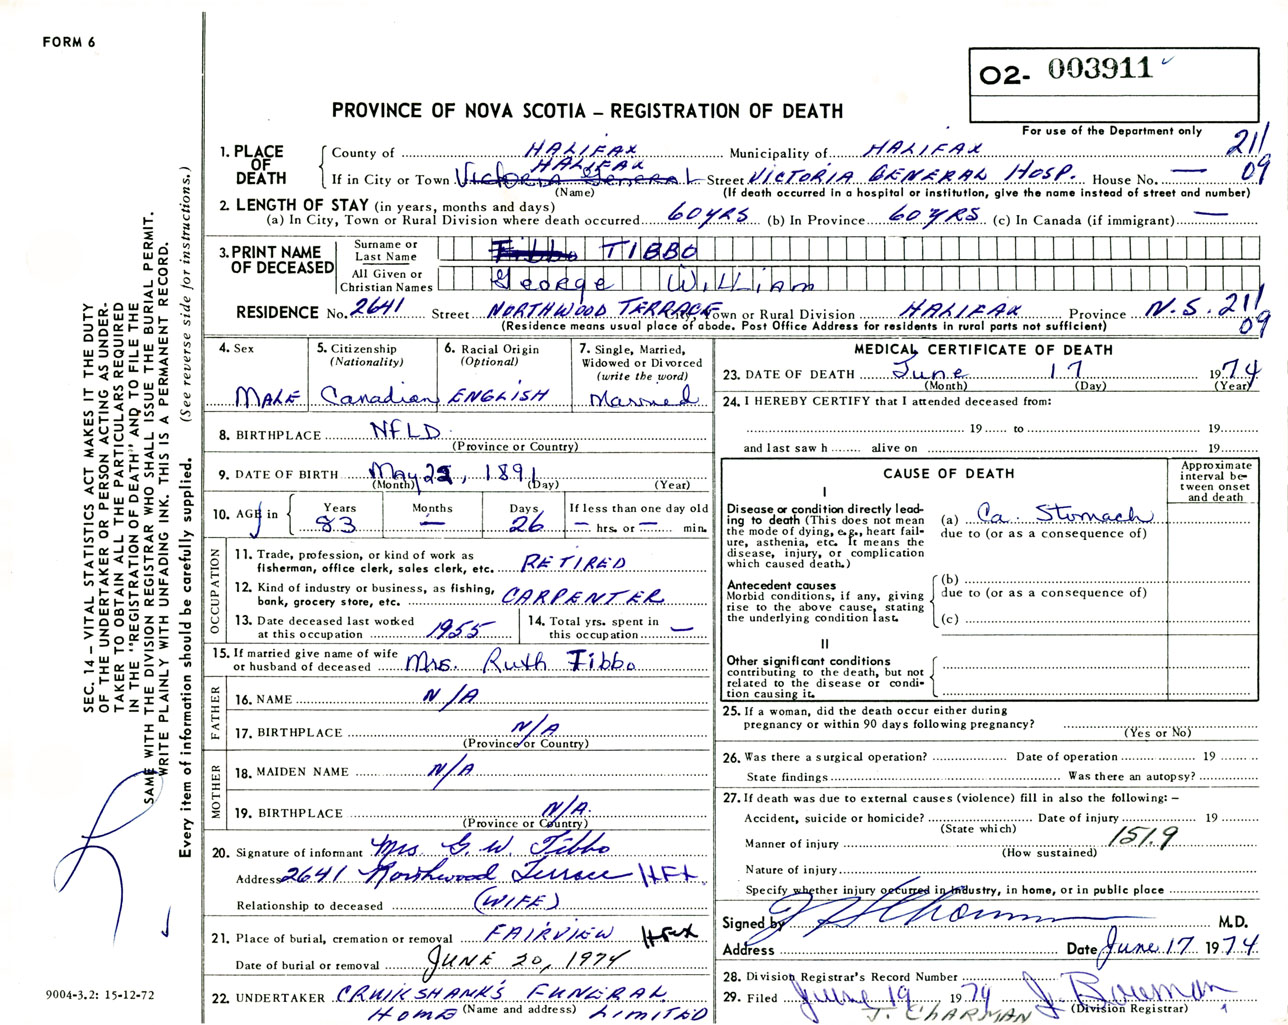 FORM 6
O2- 003911
PROVINCE OF NOVA SCOTIA – REGISTRATION OF DEATH
For use of the Department only
211
09
1. PLACE OF DEATH
County of HALIFAX Municipality of HALIFAX
HALIFAX
If in City or Town Victoria General Street VICTORIA GENERAL HOSP. House No. —
(Name) (If death occurred in a hospital or institution, give the name instead of street and number)
2. LENGTH OF STAY (in years, months and days)
(a) In City, Town or Rural Division where death occurred 60 YRS (b) In Province 60 YRS (c) In Canada (if immigrant) —
3. PRINT NAME OF DECEASED
Surname or Last Name Tibbo TIBBO
All Given or Christian Names George William
RESIDENCE No. 2641 Street NORTHWOOD TERRACE Town or Rural Division HALIFAX Province N.S. 211
09
(Residence means usual place of abode. Post Office Address for residents in rural parts not sufficient)
4. Sex
MALE
5. Citizenship
(Nationality)
Canadian
6. Racial Origin
(Optional)
ENGLISH
7. Single, Married,
Widowed or Divorced
(write the word)
Married
8. BIRTHPLACE NFLD
(Province or Country)
9. DATE OF BIRTH May 22, 1891
(Month) (Day) (Year)
10. AGE in Years Months Days If less than one day old
83 — 26 — hrs. or — min.
OCCUPATION
11. Trade, profession, or kind of work as
fisherman, office clerk, sales clerk, etc. RETIRED
12. Kind of industry or business, as fishing,
bank, grocery store, etc. CARPENTER
13. Date deceased last worked
at this occupation 1955
14. Total yrs. spent in
this occupation —
15. If married give name of wife
or husband of deceased Mrs. Ruth Tibbo
FATHER
16. NAME N/A
17. BIRTHPLACE N/A
(Province or Country)
MOTHER
18. MAIDEN NAME N/A
19. BIRTHPLACE N/A.
(Province or Country)
20. Signature of informant Mrs G. W. Tibbo
Address 2641 Northwood Terrace HFX.
Relationship to deceased (WIFE)
21. Place of burial, cremation or removal FAIRVIEW Hfx
Date of burial or removal JUNE 20, 1974
22. UNDERTAKER CRUIKSHANK'S FUNERAL
HOME (Name and address) LIMITED
MEDICAL CERTIFICATE OF DEATH
23. DATE OF DEATH June 17 1974
(Month) (Day) (Year)
24. I HEREBY CERTIFY that I attended deceased from:
19 to 19
and last saw h alive on 19
CAUSE OF DEATH
Approximate
interval be-
tween onset
and death
I
Disease or condition directly lead-
ing to death (This does not mean
the mode of dying, e.g., heart fail-
ure, asthenia, etc. It means the
disease, injury, or complication
which caused death.)
(a) Ca. Stomach
due to (or as a consequence of)
Antecedent causes
Morbid conditions, if any, giving
rise to the above cause, stating
the underlying condition last.
(b)
due to (or as a consequence of)
(c)
II
Other significant conditions
contributing to the death, but not
related to the disease or condi-
tion causing it.
25. If a woman, did the death occur either during
pregnancy or within 90 days following pregnancy?
(Yes or No)
26. Was there a surgical operation? Date of operation 19
State findings Was there an autopsy?
27. If death was due to external causes (violence) fill in also the following: –
Accident, suicide or homicide? Date of injury 19
(State which)
Manner of injury 151.9
(How sustained)
Nature of injury
Specify whether injury occurred in industry, in home, or in public place
Signed by M.D.
Address Date June 17 1974.
28. Division Registrar's Record Number
29. Filed June 19 1974 J. Bowman
J. CHARMAN (Division Registrar)
SEC. 14 – VITAL STATISTICS ACT MAKES IT THE DUTY
OF THE UNDERTAKER OR PERSON ACTING AS UNDER-
TAKER TO OBTAIN ALL THE PARTICULARS REQUIRED
IN THE "REGISTRATION OF DEATH" AND TO FILE THE
SAME WITH THE DIVISION REGISTRAR WHO SHALL ISSUE THE BURIAL PERMIT.
WRITE PLAINLY WITH UNFADING INK. THIS IS A PERMANENT RECORD.
Every item of information should be carefully supplied. (See reverse side for instructions.)
9004-3.2: 15-12-72